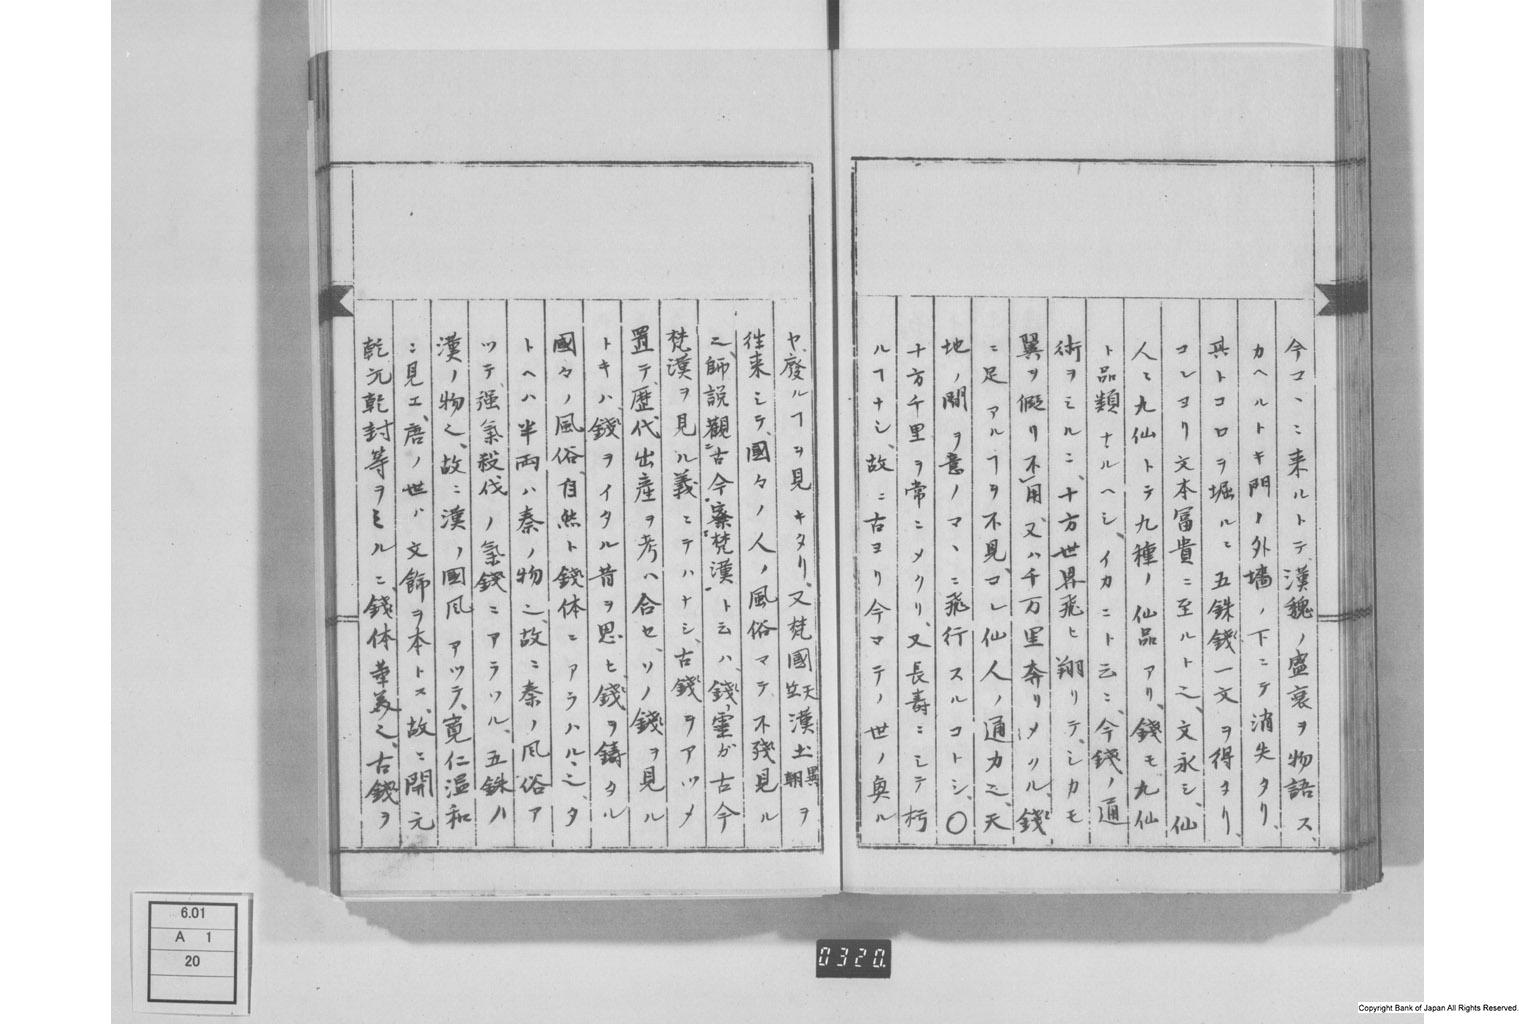 今コヽニ来ルトテ、漢魏ノ盛衰ヲ物語ス、
カヘルトキ門ノ外墻ノ下ニテ消失タリ、
其トコロヲ堀ルニ五銖錢一文ヲ得タリ、
コレヨリ文本冨貴ニ至ルト之、文永シ、仙
人ニ九仙トテ九種ノ仙品アリ、錢モ九仙
ト品類ナルヘシ、イカニト云ニ、今錢ノ通
術ヲミルニ、十方世界飛ヒ翔リテ、シカモ
翼ヲ假リ不用又ハ千万里奔リメクル、錢
ニ足アルヿヲ不見、コレ仙人ノ通力之、天
地ノ間ヲ意ノマヽニ飛行スルコトシ、〇
十方千里ヲ常ニメクリ、又長壽ニシテ朽
ルヿナシ、故ニ古ヨリ今マテノ世ノ奥ル
ヤ、廢ルヿヲ見キタリ、又梵國天竺漢土異朝ヲ
往来シテ、國々ノ人ノ風俗マテ不残見ル
之、師説觀古今案梵漢トムハ、錢ノ靈ガ古今
梵漢ヲ見ル義ニテハナシ、古錢ヲアツメ
置テ、歴代出產ヲ考ヘ合セ、ソノ錢ヲ見ル
トキハ、錢ヲイタル昔ヲ思ヒ、錢ヲ鋳タル
國々ノ風俗、自然ト錢体ニアラハルニ之、タ
トヘハ半両ハ秦ノ物之、故ニ秦ノ風俗ア
ツテ、强氣殺伐ノ氣錢ニアラワル、五銖ハ
漢ノ物之、故ニ漢ノ國風アツテ、寛仁温和
ニ見エ、唐ノ世ハ文飾ヲ本トス、故ニ開元
乾元乾封等ヲミルニ、錢体華美之、古錢ヲ
6.01
A 1
20
0320
Copyright Bank of Japan All Rights Reserved.